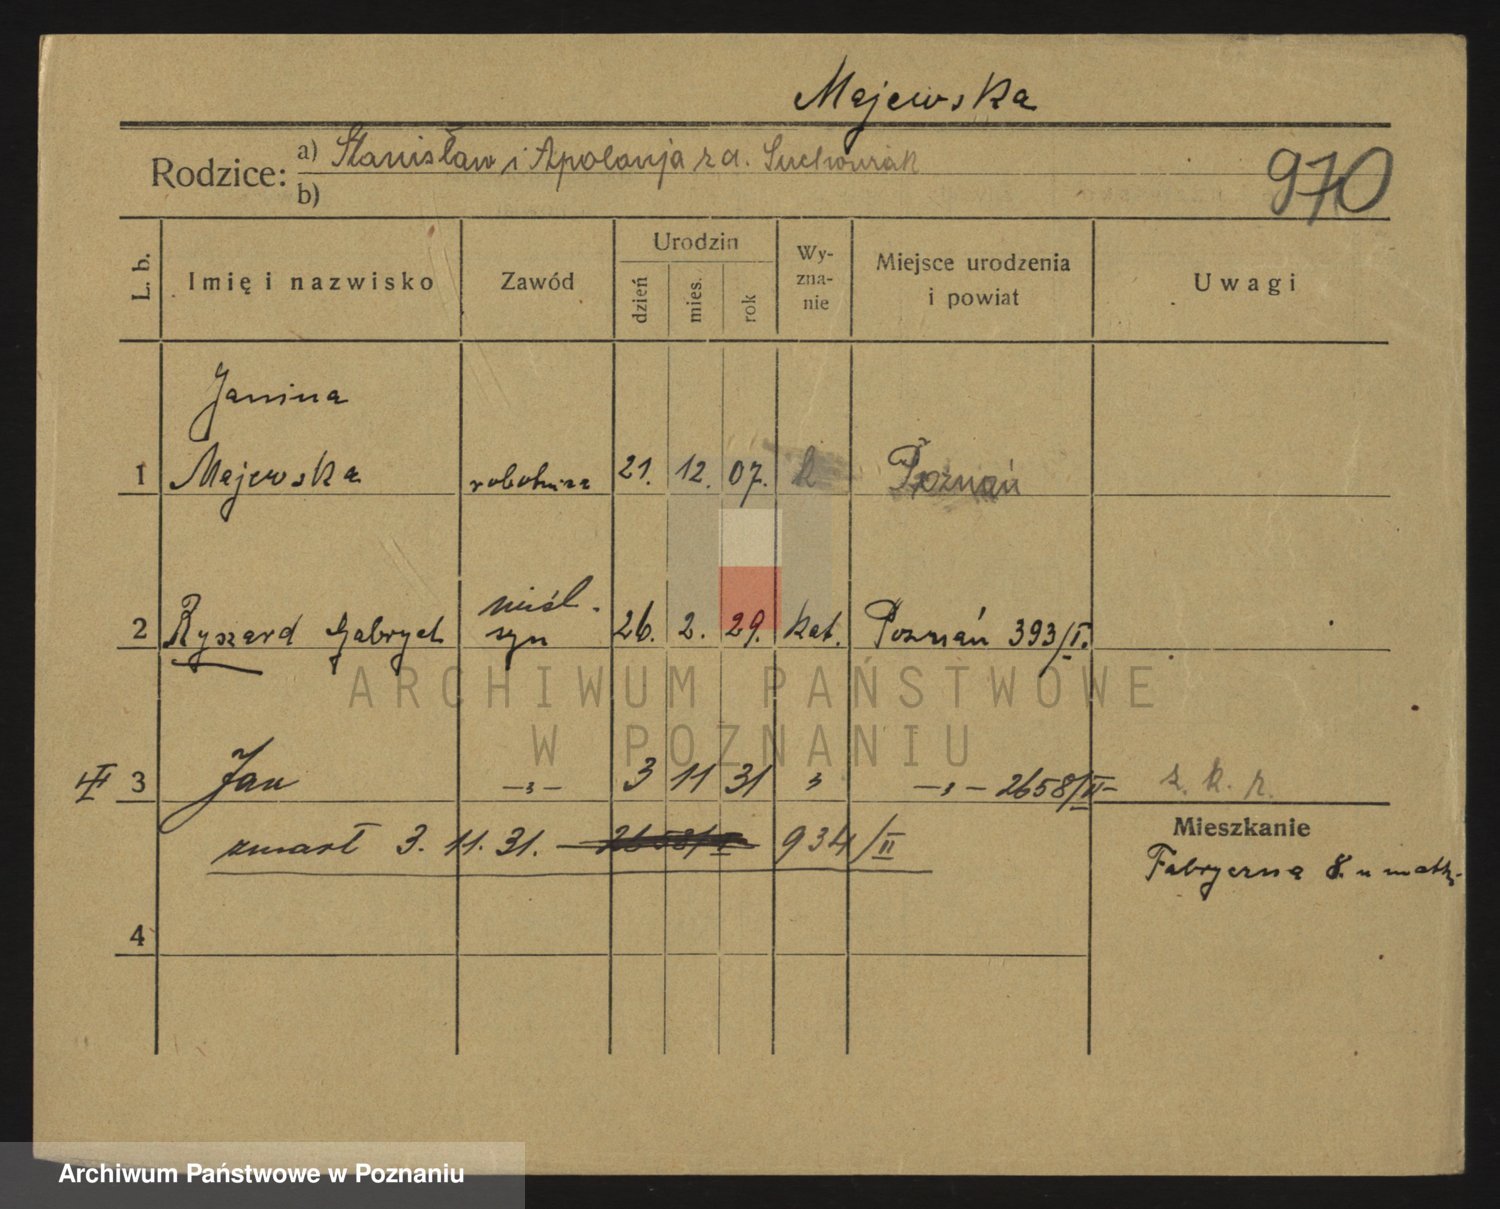 Majewska
Rodzice: a) Stanisław i Apolonja z d. Suchowiak
b)
970
L. b. Imię i nazwisko Zawód Urodzin dzień mies. rok Wy-zna-nie Miejsce urodzenia i powiat Uwagi
Janina
1 Majewska robotnica 21. 12. 07. k Poznań
nieśl.
2 Ryszard Gabryel syn 26. 2. 29. kat. Poznań 393/I.
ARCHIWUM PAŃSTWOWE
W POZNANIU
3 Jan -„- 3 11 31 „ -„- 2658/II z. k. r.
zmarł 3. 11. 31. 934/II
Mieszkanie
Fabryczna 8. u matki
4
Archiwum Państwowe w Poznaniu